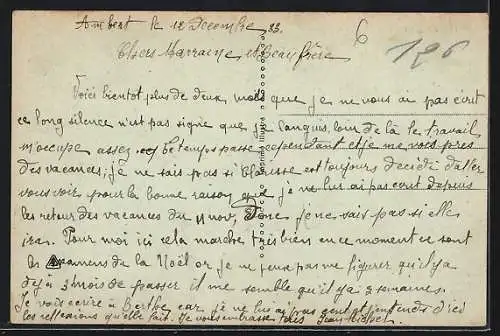 Ambert le 12 Decembre 33.
6
126
Chers Marraine et Beaufrère
Voici bientôt plus de deux mois que je ne vous ai pas écrit
ce long silence n'est pas signe que je languis, loin de là le travail
m'occupe assez et le temps passe cependant et je me vois près
des vacances, je ne sais pas si est toujours décidé d'aller
vous voir pour la bonne raison que je ne lui ai pas écrit depuis
les retour des vacances du 11 nov, Donc je ne sais pas si elle
ira. Pour moi ici cela marche très bien en ce moment ce sont
les examens de la Noël or je ne peux pas me figurer qu'il y a
déjà 3 mois de passer il me semble qu'il y a 3 semaines.
Je vais écrire à Berthe car je ne lui ai pas écrit et j'entends d'ici
les reflexions qu'elle fait. Je vous embrasse